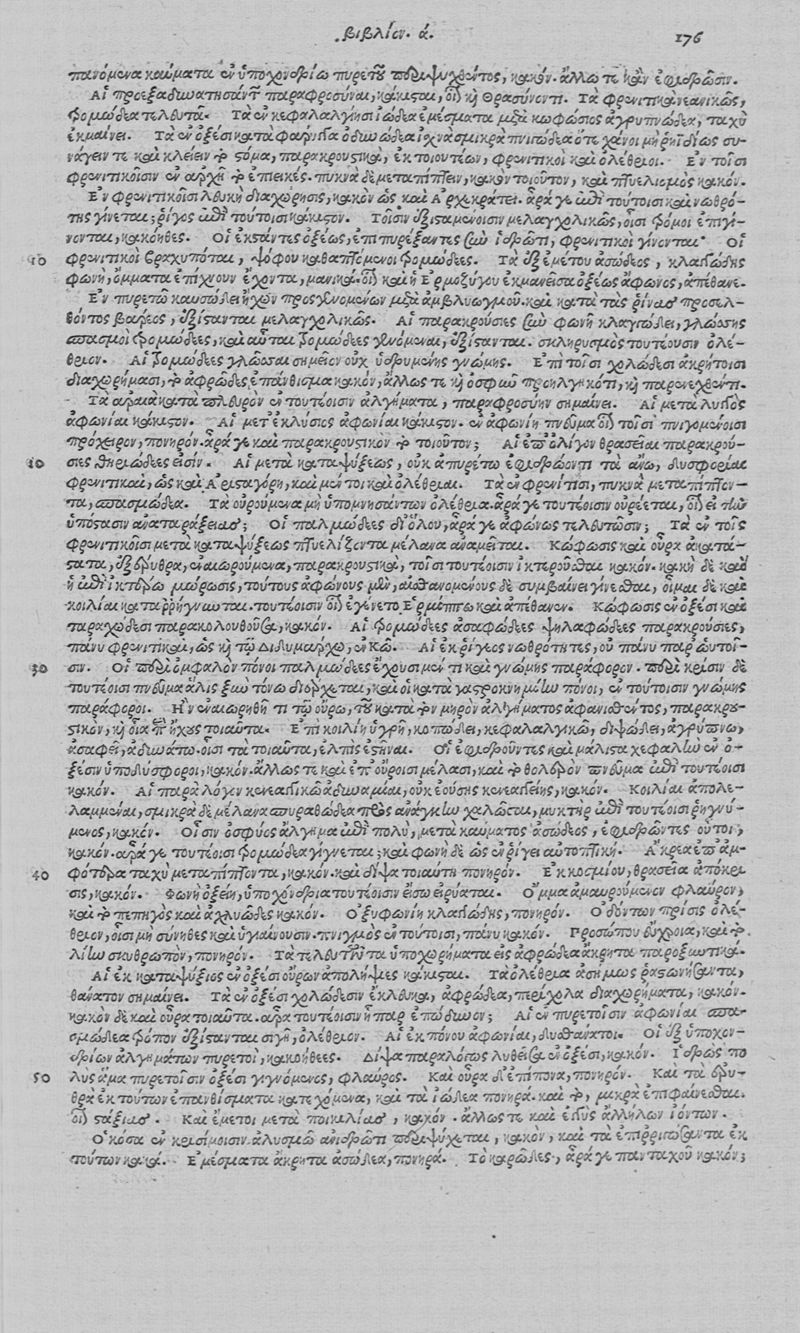 βιβλίον. ά. 176
πανόμενα καύματα ἐν ὑποχονδρίῳ πυρετοῦ περιψυχθέντος, κακόν. ἄλλως τε κἂν ἐφιδρῶσιν.
Αἱ προεξαδυνατησάντων παραφροσύναι, κάκισται, οἷον καὶ Θρασύνοντι. Τὰ φρενιτικὰ νεανικῶς,
τρομώδεα τελευτᾷ. Τὰ ἐν κεφαλαλγίῃσι ἰώδεα ἐμέσματα μετὰ κωφώσιος ἀγρυπνώδεα, ταχὺ
ἐκμαίνει. Τὰ ἐν ὀξέσι κατὰ φάρυγγα ὀδυνώδεα ἰχνὰ σμικρὰ πνιγώδεα ὅτε χάνοι μὴ ῥηϊδίως συ-
νάγειν τε καὶ κλείειν τὸ στόμα, παρακρουστικὰ, ἐκ τουτέων, φρενιτικοὶ καὶ ὀλέθριοι. Ἐν τοῖσι
φρενιτικοῖσιν ἐν ἀρχῇ τὸ ἐπιεικές. πυκνὰ δὲ μεταπίπτειν, κακὸν τοιοῦτον, καὶ πτυελισμὸς κακόν.
Ἐν φρενιτικοῖσι λευκὴ διαχώρησις, κακὸν ὡς καὶ Ἀρχεκράτει. ἆρά γε ἐπὶ τούτοισι καὶ νωθρό-
της γίνεται; ῥῖγος ἐπὶ τούτοισι κάκιστον. Τοῖσιν ἐξισταμένοισιν μελαγχολικῶς, οἷσι τρόμοι ἐπιγί-
νονται, κακόηθες. Οἱ ἐκστάντες ὀξέως, ἐπιπυρέξαντες σὺν ἱδρῶτι, φρενιτικοὶ γίνονται. Οἱ
10 φρενιτικοὶ βραχυπόται, ψόφου καθαπτόμενοι τρομώδεες. Τὰ ἐξ ἐμέτου ἀσώδεος, κλαγγώδης
φωνὴ, ὄμματα ἐπίχνουν ἔχοντα, μανικά. οἷον καὶ ἡ Ἑρμοζύγου ἐκμανεῖσα ὀξέως ἄφωνος, ἀπέθανε.
Ἐν πυρετῷ καυσώδει ἤχων προσγενομένων μετὰ ἀμβλυωγμοῦ. καὶ κατὰ τὰς ῥῖνας προσελ-
θόντος βάρεος, ἐξίστανται μελαγχολικῶς. Αἱ παρακρούσιες σὺν φωνῇ κλαγγώδει, γλώσσης
σπασμοὶ τρομώδεες, καὶ αὗται τρομώδεες γενόμεναι, ἐξίστανται. σκληρυσμὸς τουτέοισιν ὀλέ-
θριον. Αἱ τρομώδεες γλῶσσαι σημεῖον οὐχ ἱδρυμένης γνώμης. Ἐπὶ τοῖσι χολώδεσι ἀκρήτοισι
διαχωρήμασι, τὸ ἀφρῶδες ἐπάνθισμα κακὸν, ἄλλως τε καὶ ὀσφὺν προηλγηκότι, καὶ παρενεχθέντι.
Τὰ ἀραιὰ κατὰ πλευρὸν ἐν τουτέοισιν ἀλγήματα, παραφροσύνην σημαίνει. Αἱ μετὰ λυγγὸς
ἀφωνίαι κάκιστον. Αἱ μετ' ἐκλύσιος ἀφωνίαι κάκιστον. ἐν ἀφωνίῃ πνεῦμα οἷον τοῖσι πνιγομένοισι
πρόχειρον, πονηρόν. ἆρά γε καὶ παρακρουστικὸν τὸ τοιοῦτον; Αἱ ἐπ' ὀλίγον θρασεῖαι παρακρού-
20 σιες θηριώδεές εἰσιν. Αἱ μετὰ καταψύξεως, οὐκ ἀπυρέτῳ ἐφιδρῶντι τὰ ἄνω, δυσφορίαι
φρενιτικαὶ, ὡς καὶ Ἀρισταγόρῃ, καὶ μέντοι καὶ ὀλέθριαι. Τὰ ἐν φρενίτισι, πυκνὰ μεταπίπτον-
τα, σπασμώδεα. Τὰ οὐρούμενα μὴ ὑπομνησάντων ὀλέθρια. ἆρά γε τουτέοισιν οὐρέεται, οἷον εἰ τὴν
ὑπόστασιν ἀναταράξειας; Οἱ παλμώδεες δι' ὅλου, ἆρά γε ἀφώνως τελευτῶσιν; Τὰ ἐν τοῖς
φρενιτικοῖσι μετὰ καταψύξεως πτυελίζοντα μέλανα ἀναμεῖται. Κώφωσις καὶ οὖρα ἀκατά-
στατα, ἐξέρυθρα, ἐναιωρούμενα, παρακρουστικά, τοῖσι τουτέοισιν ἰκτεροῦσθαι κακόν. κακὴ δὲ καὶ
ἡ ἐπὶ ἰκτέρῳ μώρωσις, τούτους ἀφώνους μὲν, αἰσθανομένους δὲ συμβαίνει γίνεσθαι, οἶμαι δὲ καὶ
κοιλίαι καταρρήγνυνται. τουτέοισιν οἷον ἐγένετο Ἑρμίππῳ καὶ ἀπέθανεν. Κώφωσις ἐν ὀξέσι καὶ
ταραχώδεσι παρακολουθοῦσα, κακόν. Αἱ τρομώδεες ἀσαφώδεες ψηλαφώδεες παρακρούσιες,
πάνυ φρενιτικαί, ὡς καὶ τῷ Διδυμάρχῳ, ἐν Κῷ. Αἱ ἐκ ῥίγεος νωθρότητες, οὐ πάνυ παρ' ἑωυτοῖ-
30 σιν. Οἱ περὶ ὀμφαλὸν πόνοι παλμώδεες ἔχουσι μέν τι καὶ γνώμης παράφορον. περὶ κρίσιν δὲ
τουτέοισι πνεῦμα ἅλις ξὺν τόνῳ διέρχεται, καὶ οἱ κατὰ γαστροκνημίην πόνοι, ἐν τούτοισιν γνώμης
παράφοροι. Ἢν ἐναιωρηθῇ τι τῷ οὔρῳ, τοῦ κατὰ τὸν μηρὸν ἀλγήματος ἀφανισθέντος, παρακρου-
στικόν, καὶ οἷα περὶ ἤχους τοιαῦτα. Ἐπὶ κοιλίῃ ὑγρῇ, κοπώδει, κεφαλαλγικῷ, διψώδει, ἀγρύπνῳ,
ἀσαφεῖ, ἀδυνάτῳ. οἷσι τὰ τοιαῦτα, ἐλπὶς ἐκστῆναι. Οἱ ἐφιδροῦντες καὶ μάλιστα κεφαλὴν ἐν ὀ-
ξέσιν ὑποδύσφοροι, κακόν. ἄλλως τε καὶ ἐπ' οὔροισι μέλασι, καὶ τὸ θολερὸν πνεῦμα ἐπὶ τουτέοισι
κακόν. Αἱ παρὰ λόγον κενεαγγικῶς ἀδυναμίαι, οὐκ ἐούσης κενεαγγείης, κακόν. Κοιλίαι ἀπολε-
λαμμέναι, σμικρὰ δὲ μέλανα σπυραθώδεα πρὸς ἀνάγκην χαλῶσαι, μυκτὴρ ἐπὶ τουτέοισι ῥηγνύ-
μενος, κακόν. Οἷσιν ὀσφύος ἄλγημα ἐπὶ πολὺ, μετὰ καύματος ἀσώδεος, ἐφιδρῶντες οὗτοι,
κακόν. ἆρά γε τουτέοισι τρομώδεα γίγνεται; καὶ φωνὴ δὲ ὡς ἐν ῥίγει αὐτοπτική. Ἄκρεα ἐπ' ἀμ-
40 φότερα ταχὺ μεταπίπτοντα, κακόν. καὶ δίψα τοιαύτη πονηρόν. Ἐκ κοσμίου, θρασεῖα ἀπόκρι-
σις, κακόν. Φωνὴ ὀξείη, ὑποχόνδρια τουτέοισιν εἴσω εἰρύαται. Ὄμμα ἀμαυρούμενον φλαῦρον,
καὶ τὸ πεπηγὸς καὶ ἀχλυῶδες κακόν. Ὀξυφωνίη κλαγγώδης, πονηρόν. Ὀδόντων πρῖσις ὀλέ-
θριον, οἷσι μὴ σύνηθες καὶ ὑγιαίνουσιν. πνιγμὸς ἐν τούτοισι, πάνυ κακόν. Προσώπου εὔχροια, καὶ τὸ
λίην σκυθρωπὸν, πονηρόν. Τὰ τελευτῶντα ὑποχωρήματα εἰς ἀφρώδεα ἄκρητα παροξυντικά.
Αἱ ἐκ καταψύξιος ἐν ὀξέσι οὔρων ἀπολήψιες κάκισται. Τὰ ὀλέθρια ἀσήμως ῥᾳστωνήσαντα,
θάνατον σημαίνει. Τὰ ἐν ὀξέσι χολώδεσιν ἔκλευκα, ἀφρώδεα, περίχολα διαχωρήματα, κακόν.
κακὸν δὲ καὶ οὖρα τοιαῦτα. ἆρα τουτέοισιν ἧπαρ ἐπώδυνον; Αἱ ἐν πυρετοῖσιν ἀφωνίαι σπα-
σμώδεα τρόπον ἐξίστανται σιγῇ, ὀλέθριον. Αἱ ἐκ πόνου ἀφωνίαι, δυσθάνατοι. Οἱ ἐξ ὑποχον-
δρίων ἀλγημάτων πυρετοὶ, κακοήθεες. Δίψα παραλόγως λυθεῖσα ἐν ὀξέσι, κακόν. Ἱδρὼς πο
50 λὺς ἅμα πυρετοῖσιν ὀξέσι γιγνόμενος, φλαῦρος. Καὶ οὖρα δ' ἐπίπονα, πονηρόν. Καὶ τὰ ἐρυ-
θρὰ ἐκ τούτων ἐπανθίσματα κατεχόμενα, καὶ τὰ ἰώδεα πονηρά. καὶ τὸ, μικρὰ ἐπιφαίνεσθαι.
οἷον στάξιας. Καὶ ἔμετοι μετὰ ποικιλίας, κακόν. ἄλλως τε καὶ ἐγγὺς ἀλλήλων ἰόντων.
Ὁκόσα ἐν κρισίμοισιν ἀλυσμῷ ἀνιδρῶτι περιψύχεται, κακὸν, καὶ τὰ ἐπιρριγώσαντα ἐκ
τούτων κακά. Ἐμέσματα ἄκρητα ἀσώδεα, πονηρά. Τὸ καρῶδες, ἆρά γε πανταχοῦ κακόν;